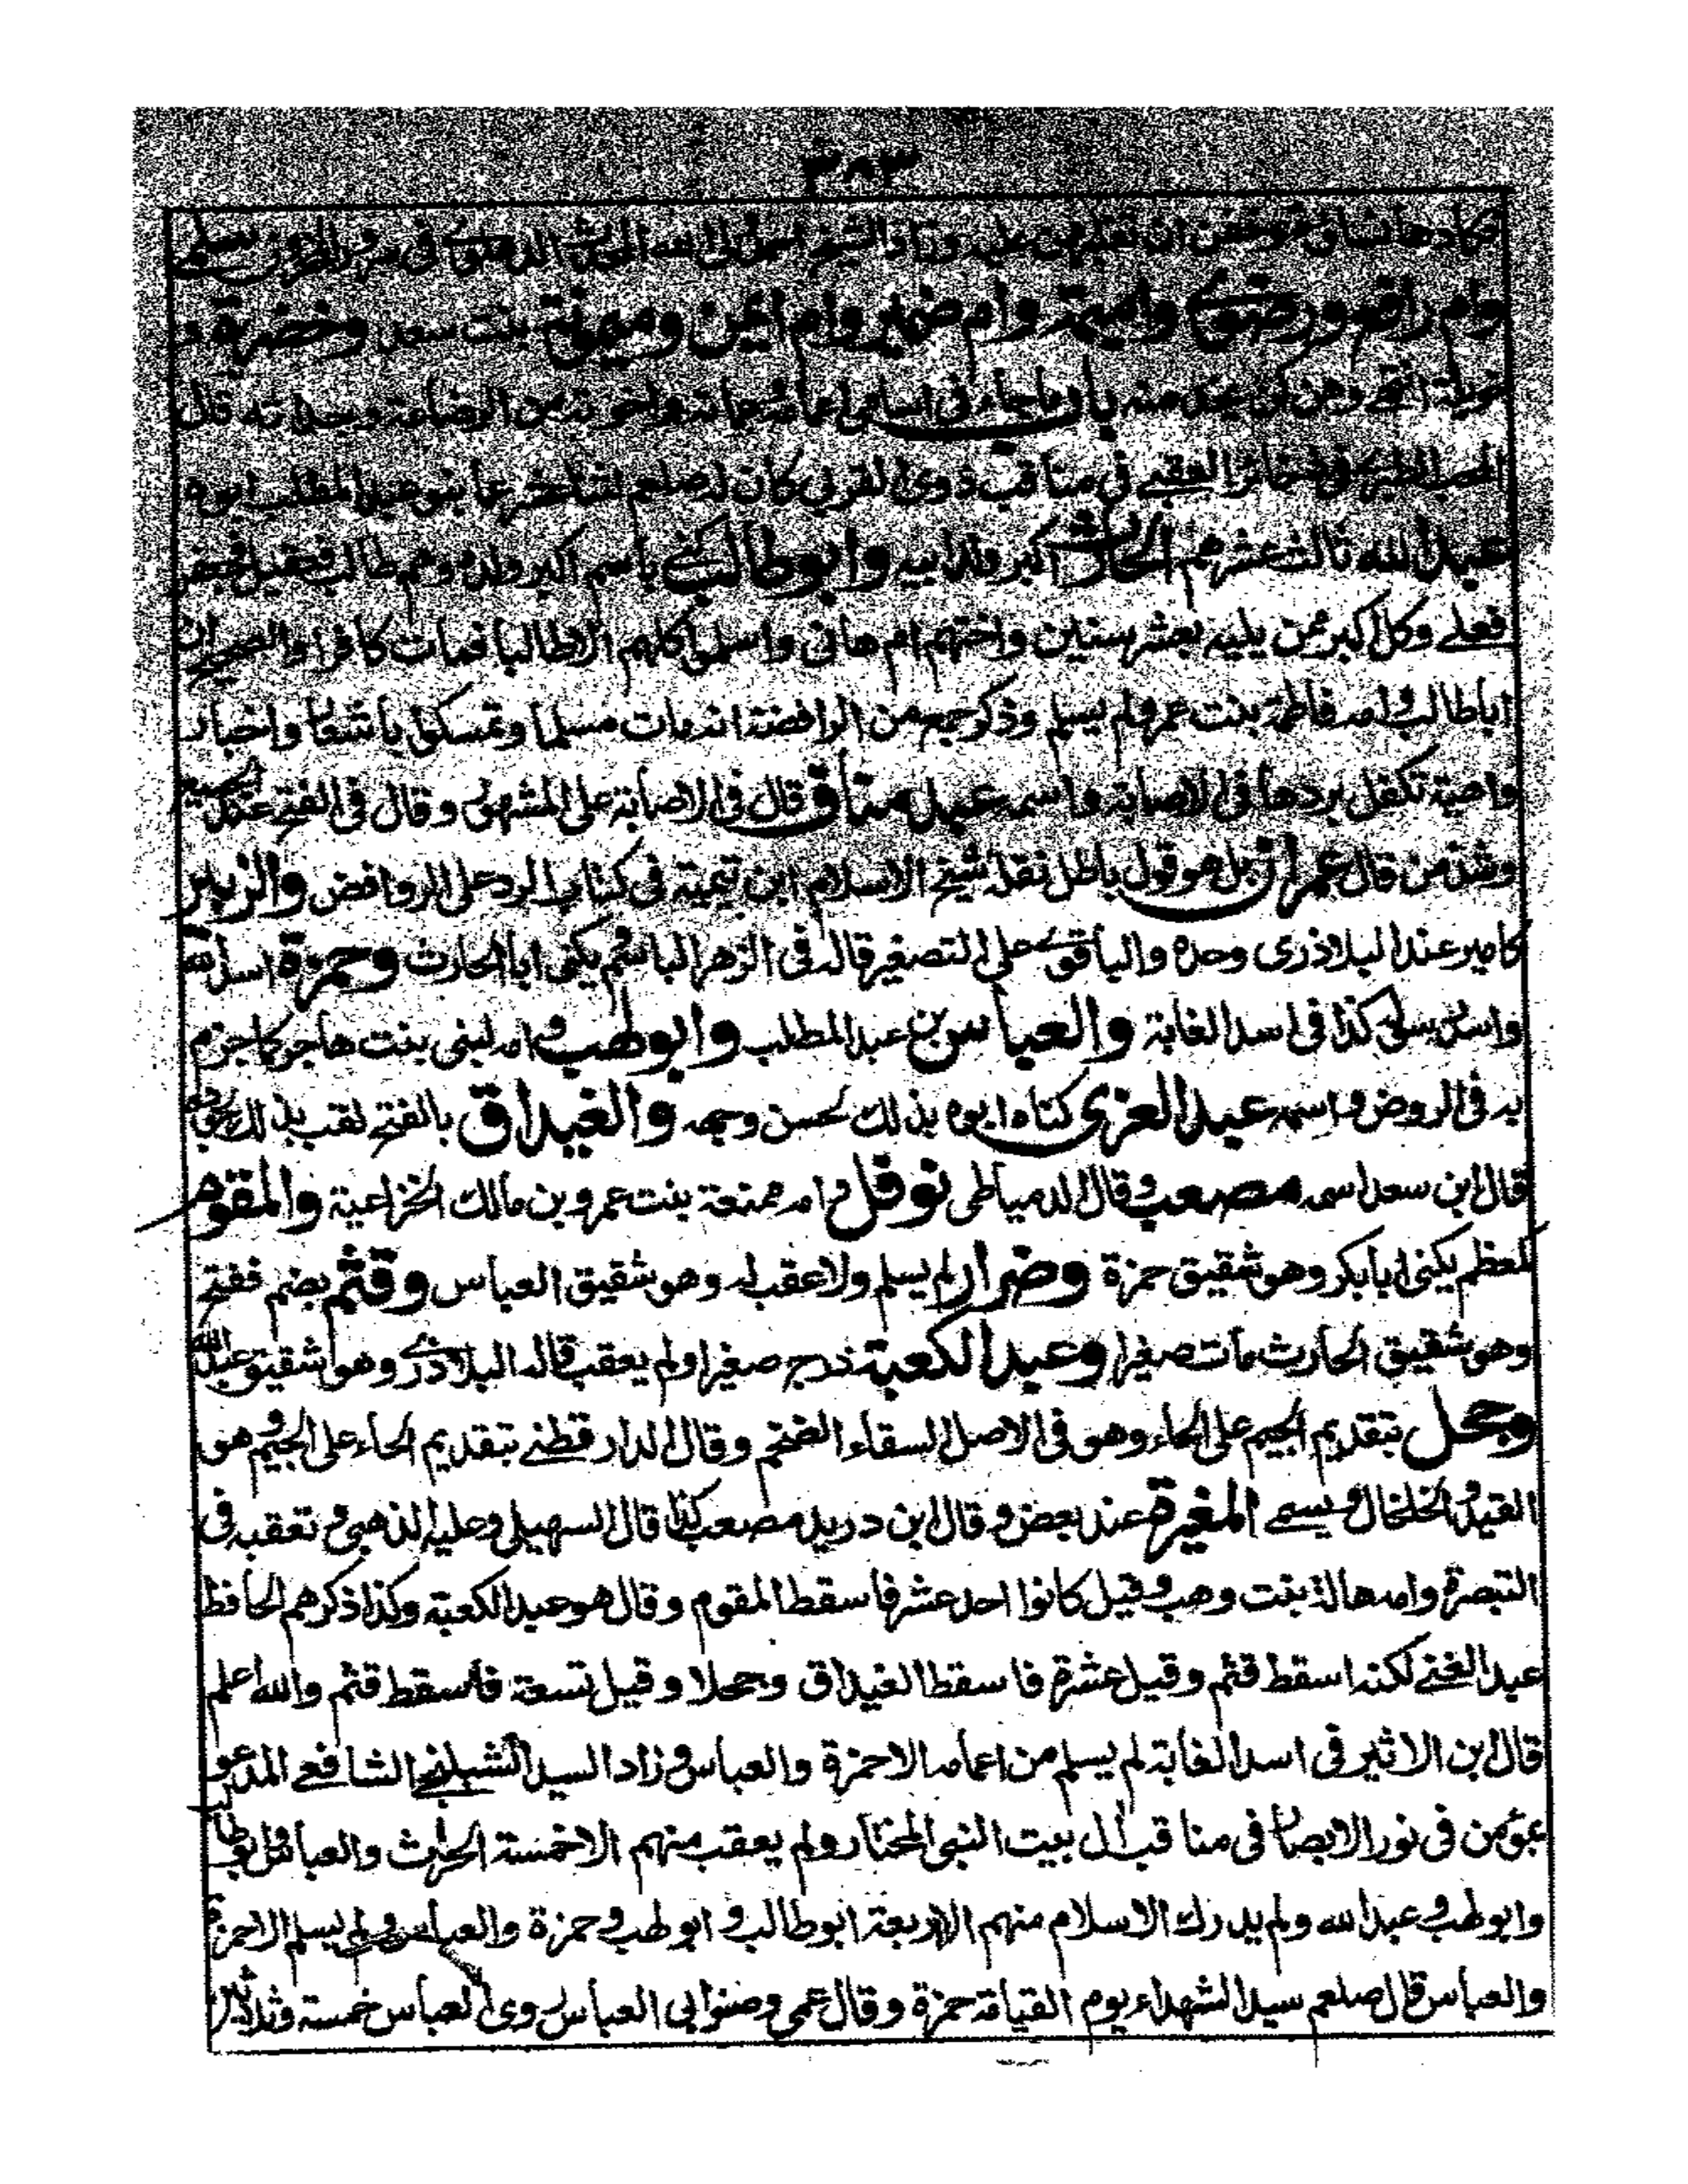 ٣٨٣
وام رافع ورضوى واميمة وام ضمير وام ايمن وميمونة بنت سعد وخضرة و
خولة وهن باب ما جاء فى اسامى اعمامه وعماته واخوته من الرضاعة وجداته قال
المحب الطبرى فى ذخائر العقبى فى مناقب ذوى القربى كان له صلعم اثنا عشر عما بنو عبد المطلب ابوه
عبد الله ثالث عشرهم الحارث اكبر ولد ابيه وابو طالب كنى باسم اكبر ولده وهم طالب فعقيل فجعفر
فعلى وكل اكبر ممن يليه بعشر سنين واختهم ام هانى واسلموا كلهم الا طالبا فمات كافرا والصحيح ان
ابا طالب وامه فاطمة بنت عمرو لم يسلم وذكر جمع من الرافضة انه مات مسلما وتمسكوا باشعار واخبار
واهية تكفل بردها فى الاصابة واسمه عبد مناف قال فى الاصابة على المشهور وقال فى الفتح عند الجميع
وشذ من قال عمران بل هو قول باطل نقله شيخ الاسلام ابن تيمية فى كتاب الرد على الروافض والزبير
كامير عند البلاذرى وحده والباقون على التصغير قاله فى الزهر الباسم يكنى ابا الحارث وحمزة اسد الله
واسد رسوله كذا فى اسد الغابة والعباس بن عبد المطلب وابو لهب وامه لبنى بنت هاجر كما جزم
به فى الروض واسمه عبد العزى كناه ابوه بذلك لحسن وجهه والغيداق بالفتح لقب بذلك لجوده
قال ابن سعد اسمه مصعب وقال الدمياطى نوفل وامه ممنعة بنت عمرو بن مالك الخزاعية والمقوم
كمعظم يكنى ابا بكر وهو شقيق حمزة وضرار لم يسلم ولا عقب له وهو شقيق العباس وقثم بضم ففتح
وهو شقيق الحارث مات صغيرا وعبد الكعبة درج صغيرا ولم يعقب قاله البلاذرى وهو شقيق عبد الله
وجحل بتقديم الجيم على الحاء وهو فى الاصل السقاء الضخم وقال الدارقطنى بتقديم الحاء على الجيم وهو
القيد والخلخال ويسمى المغيرة عند بعض وقال ابن دريد مصعب كذا قال السهيلى وعليه الذهبى وتعقبه فى
التبصرة وامه هالة بنت وهب وقيل كانوا احد عشر فاسقط المقوم وقال هو عبد الكعبة وكذا ذكرهم الحافظ
عبد الغنى لكنه اسقط قثم وقيل عشرة فاسقط الغيداق وجحلا وقيل تسعة فاسقط قثم والله اعلم
قال ابن الاثير فى اسد الغابة لم يسلم من اعمامه الا حمزة والعباس وزاد السيد الشبلنجى الشافعى المدعو
بمؤمن فى نور الابصار فى مناقب ال بيت النبى المختار ولم يعقب منهم الا خمسة الحارث والعباس وابو طالب
وابو لهب وعبد الله ولم يدرك الاسلام منهم الا اربعة ابو طالب وابو لهب وحمزة والعباس ولم يسلم الا حمزة
والعباس قال صلعم سيد الشهداء يوم القيامة حمزة وقال عمى وصنو ابى العباس روى العباس خمسة وثلاثين